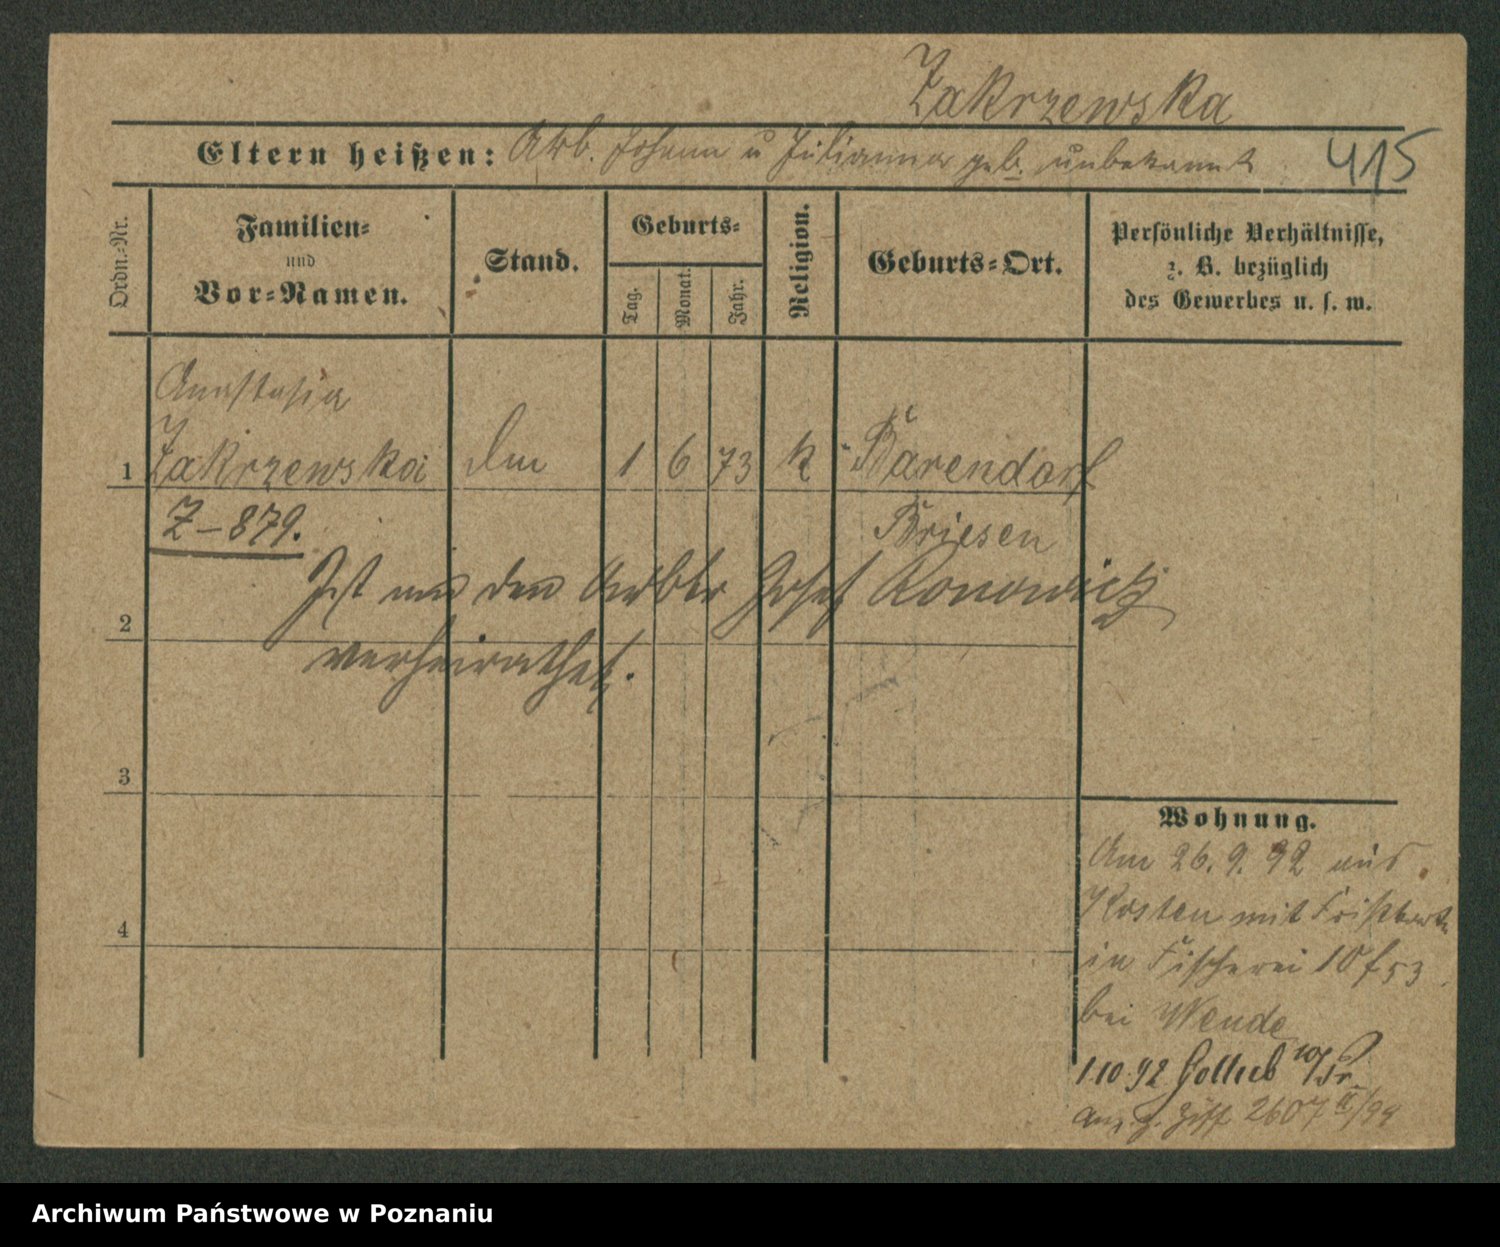 Zakrzewska
Eltern heißen: Arb. Johann u Julianna geb. unbekannt 415
Ordn.-Nr. Familien- und Vor-Namen. Stand. Geburts- Tag. Monat. Jahr. Religion. Geburts-Ort. Persönliche Verhältnisse, z. B. bezüglich des Gewerbes u. s. w.
Anastasia
1 Zakrzewska 1 6 73 k Bärendorf
Z-879. Briesen
Ist mit den Arbtr Josef Konowicz
2
verheirathet.
3
Wohnung.
Am 26.9.92 aus
Kosten mit
4
in Fischerei 10 f 53
bei Wende
1.10.92 Gollub
2607 /94
Archiwum Państwowe w Poznaniu